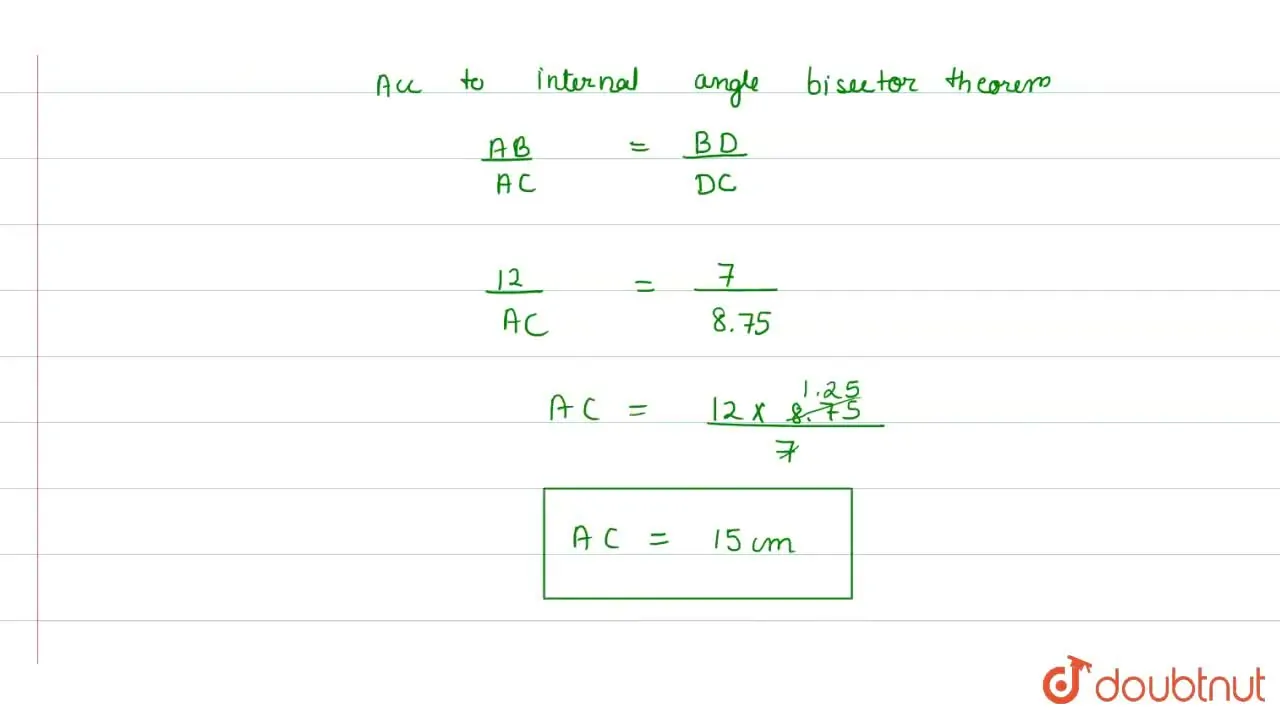 Acc to internal angle bisector theorem
AB/AC = BD/DC
12/AC = 7/8.75
1.25
AC = 12 x 8.75/7
AC = 15 cm
doubtnut